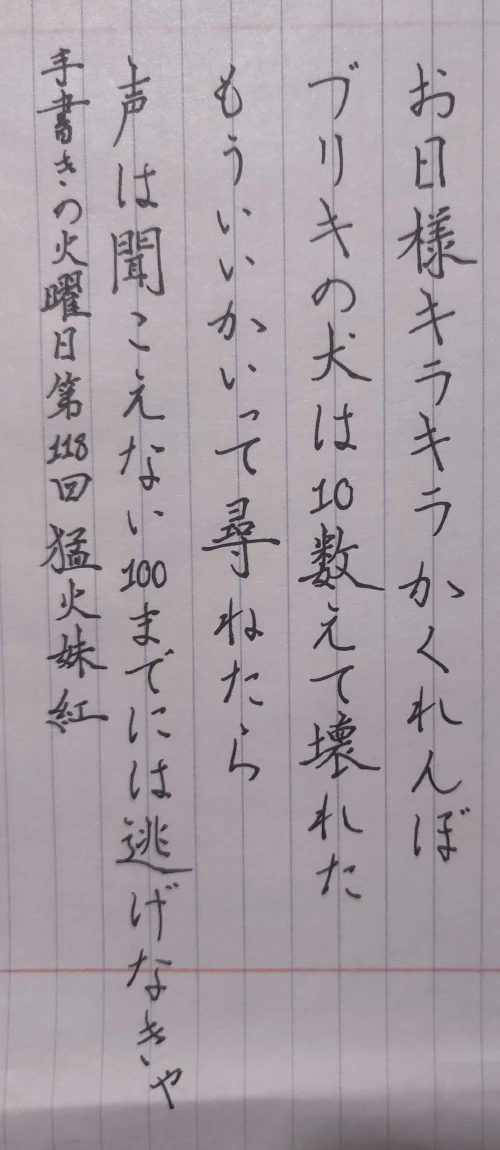 お日様キラキラかくれんぼ
ブリキの犬は10数えて壊れた
もういいかいって尋ねたら
声は聞こえない100までには逃げなきゃ
手書きの火曜日第118回猛火妹紅